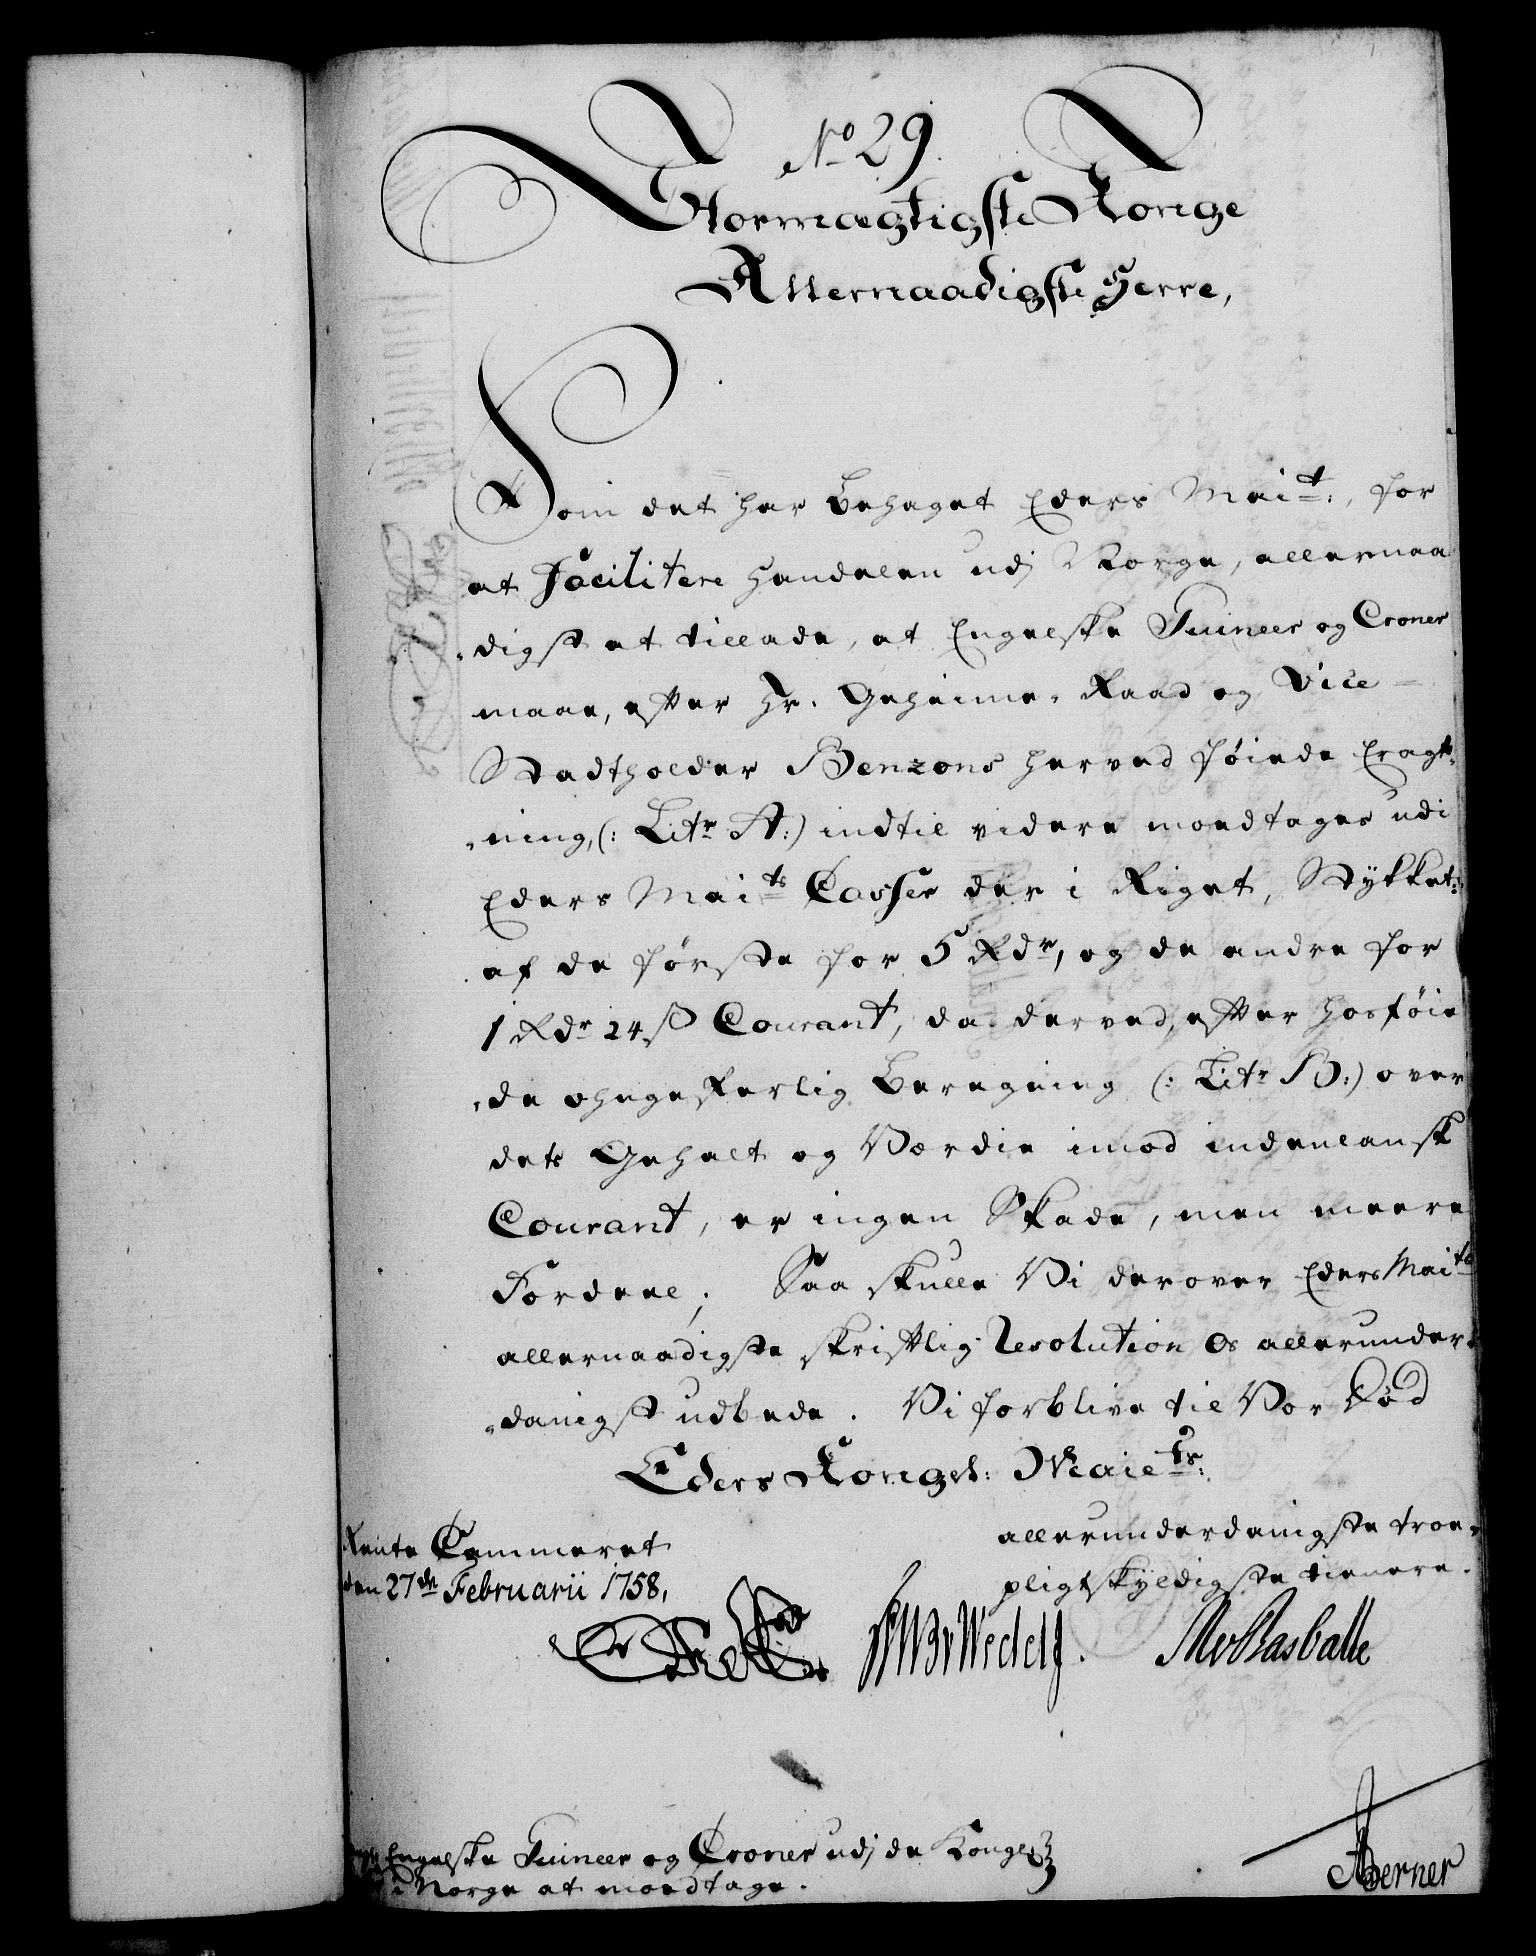 No 29.
Stormægtigste Konge
Allernaadigste Herre,
Som det har behaget Eders Mait:, for
at Facilitere Handelen udj Norge, allernaa
„digst at tillade, at Engelske Guineer og Croner
maae, efter Hr. Geheime-Raad og Vice-
Stadtholder Benzons herved føiede Eragt-
„ning, (: Litr A:) indtil videre modtages udi
Eders Maits Casser der i Riget, Stykket
af de første for 5 Rdr, og de andre for
1 Rdr 24 ß Courant, da derved, efter hosføie
„de ohngefærlig Beregning (: Litr B:) over
dets Gehalt og Værdie imod indenlansk
Courant, er ingen Skade, men meere
Fordeel; Saa skulle Vi derover Eders Maits
allernaadigste skriftlig Resolution os allerunder-
„danigst udbede. Vi forblive til Vor Død
Eders Kongel: Maiets:
allerunderdanigste troe-
pligtskyldigste tienere.
Rente Cammeret
den 27de Februarii 1758,
Wedel
Rasballe
Engelske Guineer og Croner udj de Kongel
i Norge at modtage.
Berner